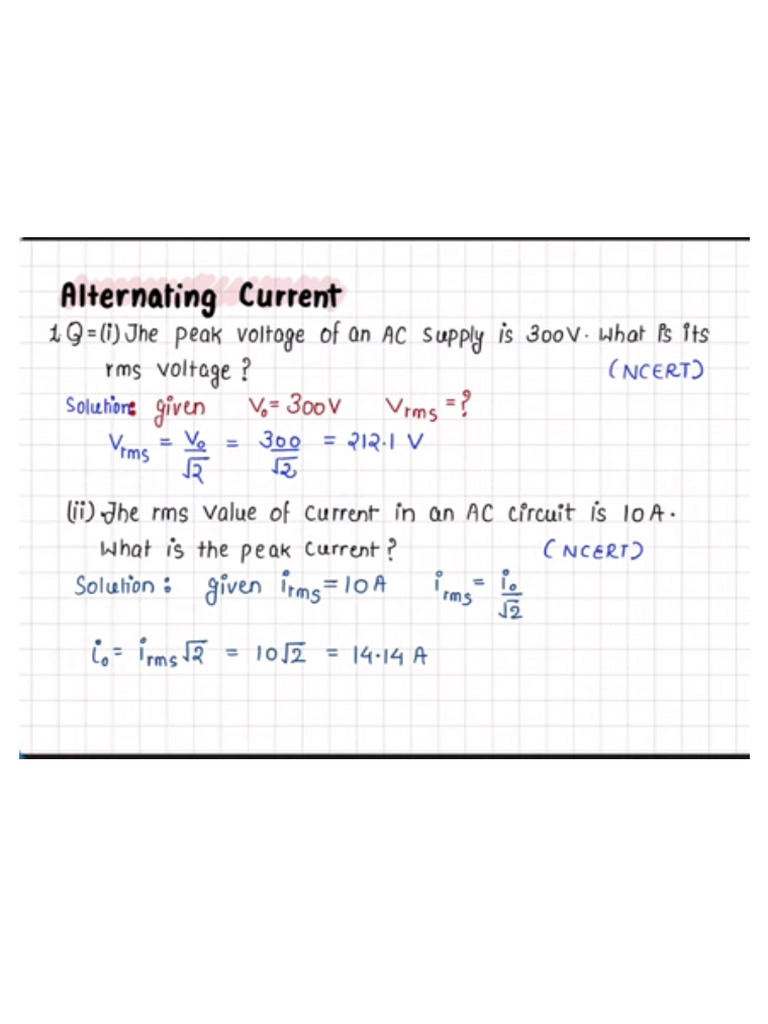 Alternating Current
1Q=(i) The peak voltage of an AC supply is 300V. What is its
rms voltage? (NCERT)
Solution: given V₀=300V Vrms=?
Vrms = V₀/√2 = 300/√2 = 212.1 V
(ii) The rms value of current in an AC circuit is 10A.
What is the peak current? (NCERT)
Solution: given irms=10A irms= i₀/√2
i₀= irms√2 = 10√2 = 14.14 A